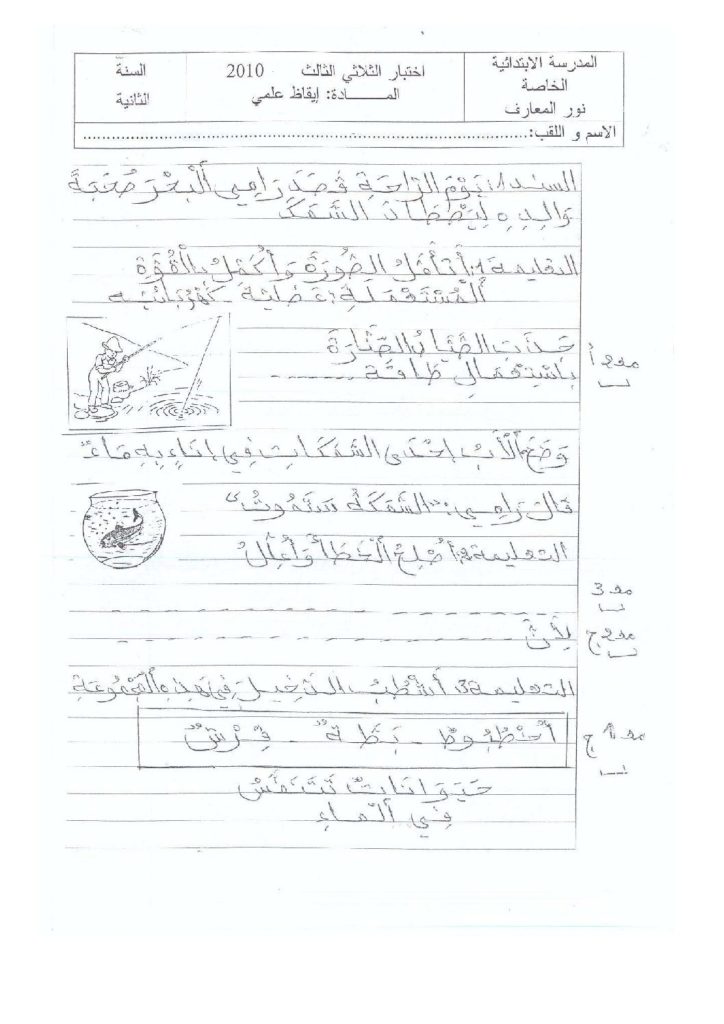 المدرسة الابتدائية
الخاصة
نور المعارف
اختبار الثلاثي الثالث 2010
المـــــــادة: إيقاظ علمي
السنة
الثانية
الاسم و اللقب:........................................................................
السند1: يَوْمَ الرَّاحَةِ قَصَدَ رَامِي اَلْبَحْرَ صُحْبَةَ
وَالِدِهِ لِيَصْطَادَ السَّمَكَ
التعليمة1: أَتَأَمَّلُ الصُّورَةَ وَأُكْمِلُ بِالْقُوَّةِ
اَلْمُسْتَعْمَلَةِ: عَضَلِيَّة - كَهْرُبَائِيَّه
جَذَبَ الصَّيَّادُ الصِّنَّارَةَ
بِاسْتِعْمَالِ طَاقَة ........
مع2أ
وَضَعَ اَلْأَبُ إِحْدَى السَّمَكَاتِ فِي إِنَاءٍ بِهِ مَاءٌ
قَالَ رَامِي: "السَّمَكَةُ سَتَمُوتُ"
التعليمة2: أُصْلِحُ اَلْخَطَأَ وَأُعَلِّلُ
مع3
لِأَنَّ
مع2ج
التعليمة3: أَشْطُبُ الدَّخِيلَ فِي هَذِهِ اَلْمَجْمُوعَةِ
أُخْطُبُوطٌ - بَطَّةٌ - قِرْشٌ
مع1ج
حَيَوَانَاتٌ تَتَنَفَّسُ
فِي اَلْمَاءِ